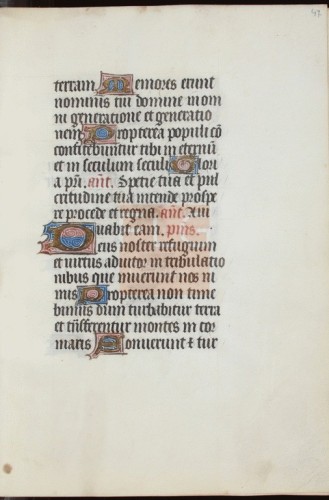 43
terram. Memores erunt
nominis tui domine in om
ni generatione et generatio
nem. Propterea populi cō
confitebuntur tibi in eternū
et in seculum seculi Glori
a pr̄i. an̄t. Specie tua et pul
critudine tua intende prospe
re procede et regna. an̄t. Adiu
uabit eam. ps̄us.
Deus noster refugium
et uirtus adiutor in tribulatio
nibus que inuenerunt nos ni
mis Propterea non time
bimus dum turbabitur terra
et trāsferentur montes in cor
maris Sonuerunt & tur